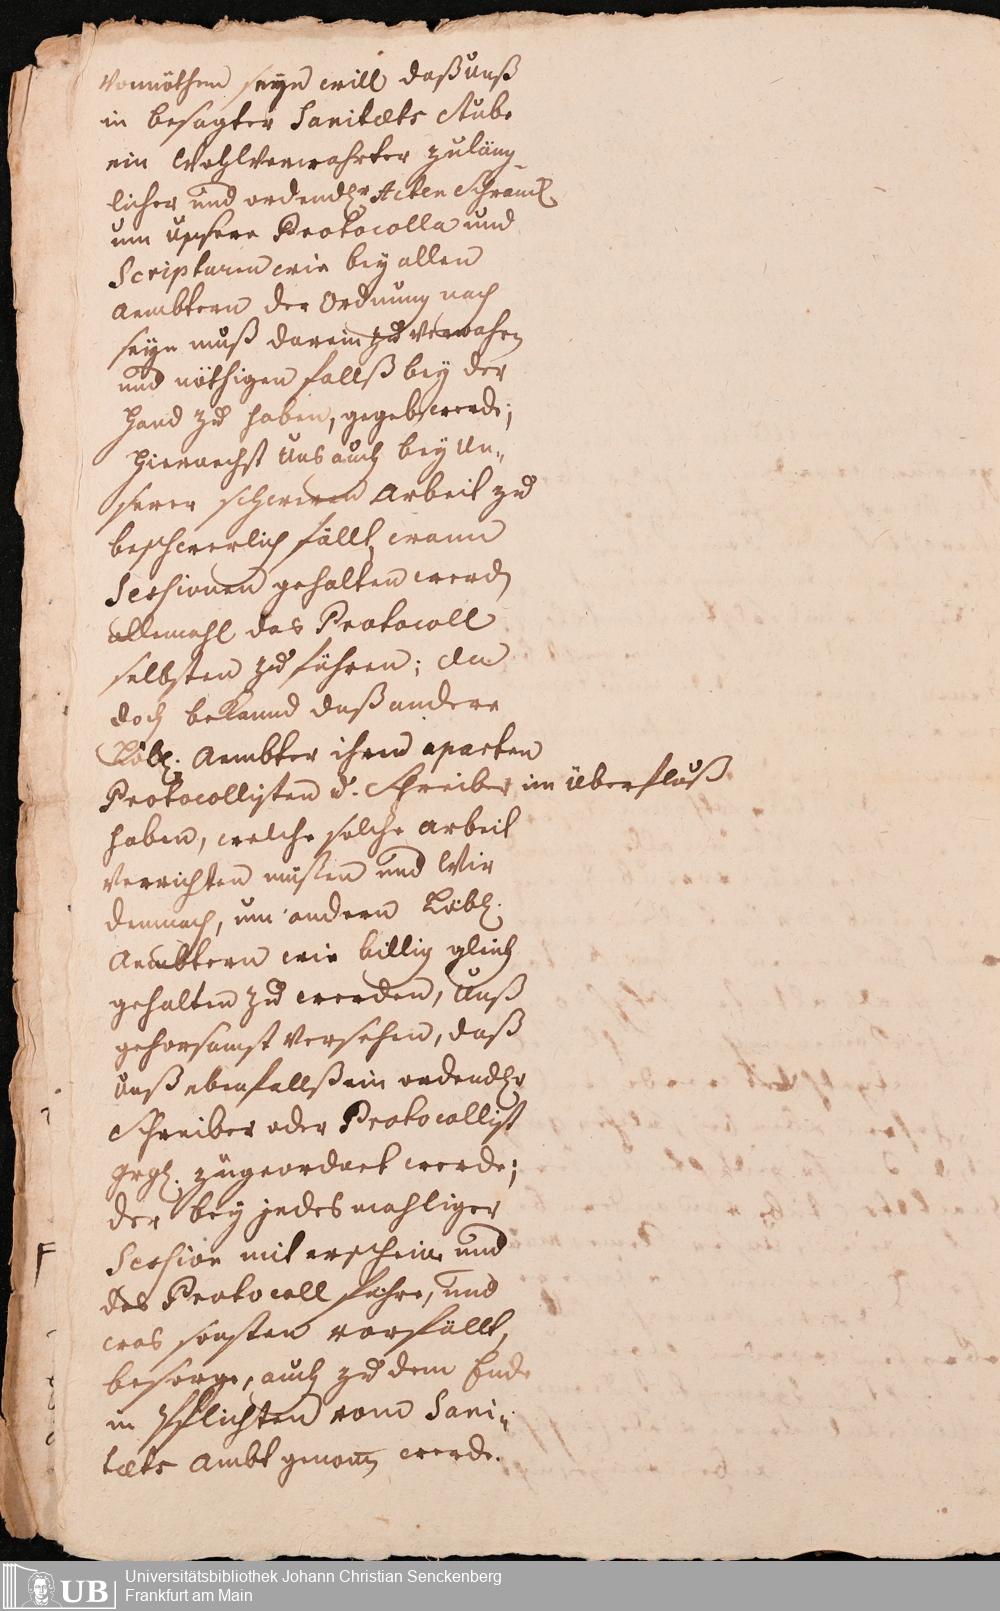 Vonnöthen seyn will daß Unß
in besagter Sanitæts Stube
ein Wohlverwahrter zuläng-
licher und ordendlr Acten Schranck
um Unsere Protocolla und
Scripturen wie bey allen
Aembtern der Ordnung nach
seyn muß darein zu Verwahrn
und nöthigen fallß bey der
Hand zu haben, gegeb werde;
Hiernechst Uns auch bey Un-
serer schweren Arbeit zu
beschwerlich fällt, wann
Sessionen gehalten werdn
allemahl das Protocoll
selbsten zu führen; da
doch bekannd daß andere
Löbl. Aembter ihren aparten
Protocollisten u. Schreiber im Überfluß
haben, welche solche Arbeit
Verrichten müssen und Wir
demnach, um andern Löbl.
Aembtern wie billig gleich
gehalten zu werden, Unß
gehorsamst Versehen, daß
Unß ebenfallß ein ordendlr
Schreiber oder Protocollist
zugeordnet werde;
der bey jedesmahliger
Session mit erscheine und
das Protocoll führe, und
was sonsten vorfällt,
besorge, auch zu dem Ende
in Pflichten vom Sani-
tæts Ambt genom̄ werde.
F
UB
Universitätsbibliothek Johann Christian Senckenberg
Frankfurt am Main